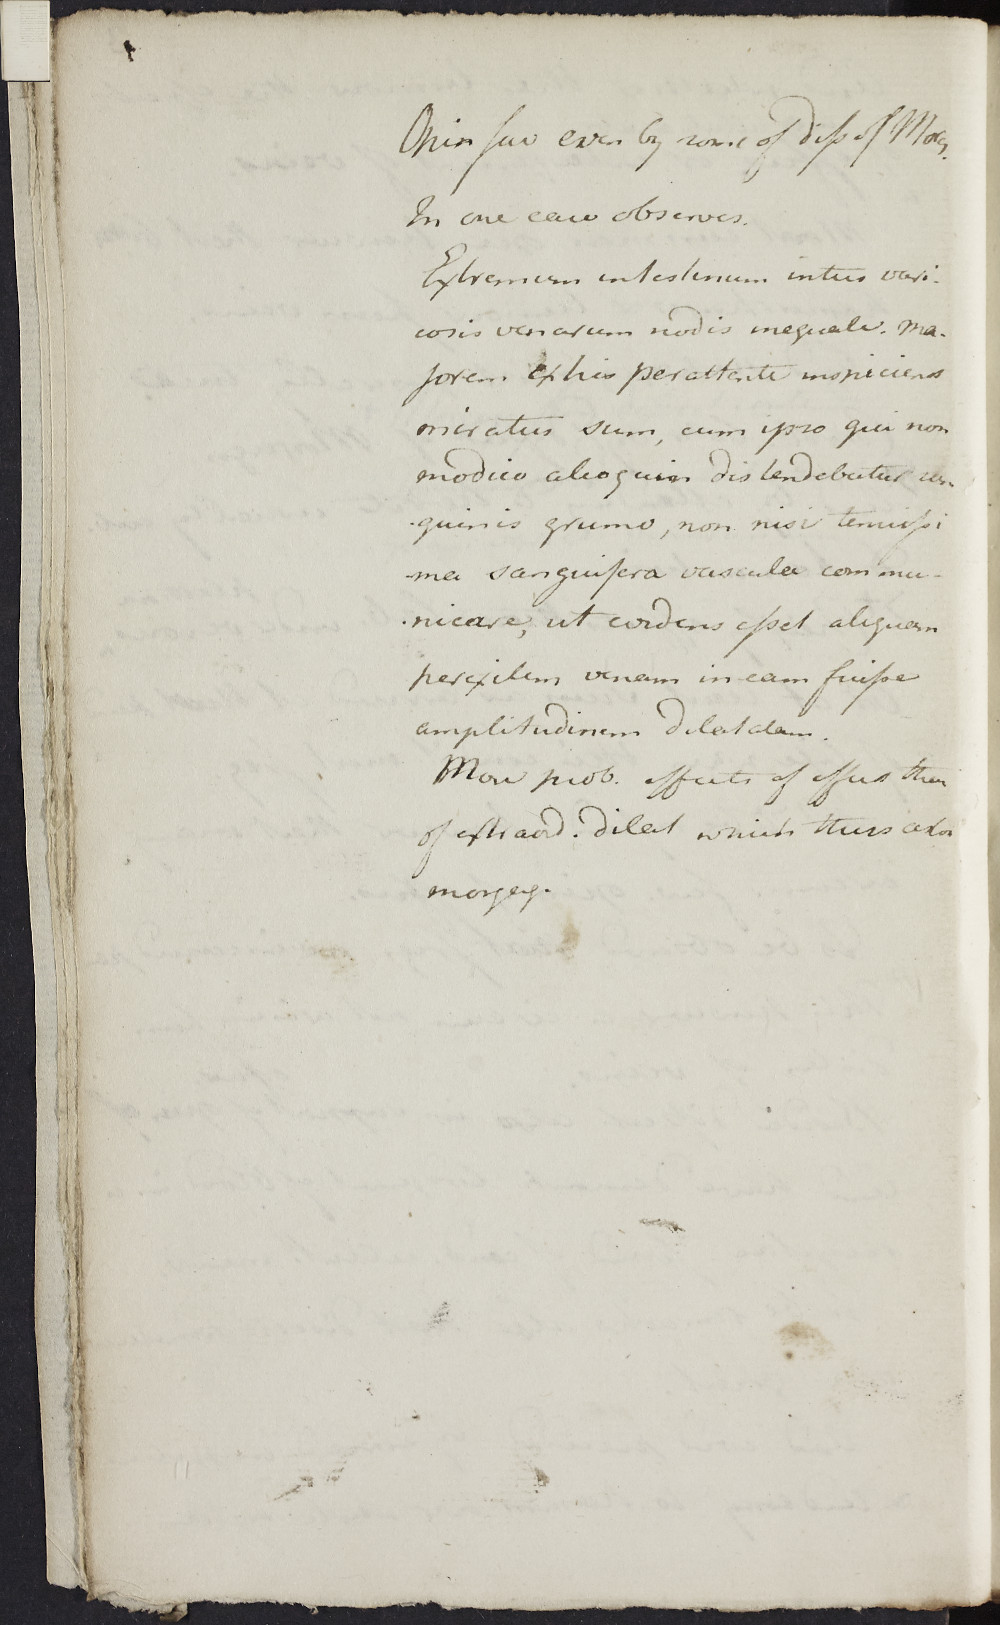 Opin fav even by some of diss of Morg.
In one case observes.
Extremum intestinum intus vari-
cosis venarum nodis inequale. Ma-
jorem ex his perattente inspiciens
miratus sum, cum ipso qui non
modico alioquin distendebatur san-
guinis grumo, non nisi tenuissi
-ma sanguifera vascula commu-
-nicare, ut evidens esset aliquam
perexilem venam in eam fuisse
amplitudinem dilatatam.
More prob. effects of effus than
of extraord. dilat which thus
morgag.